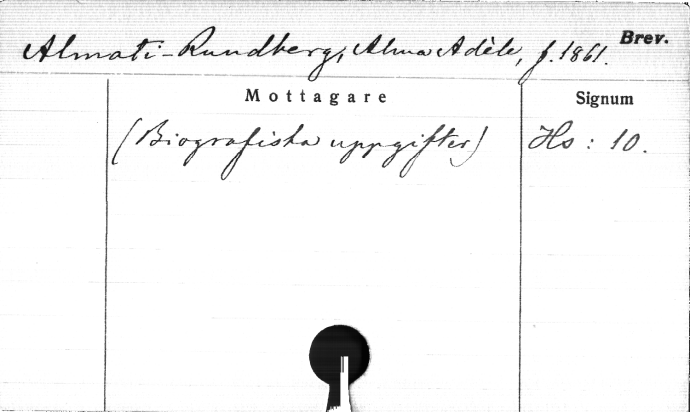 Brev.
Almati-Rundberg, Alma Adèle, f. 1861.
Mottagare Signum
(Biografiska uppgifter) Hs: 10.